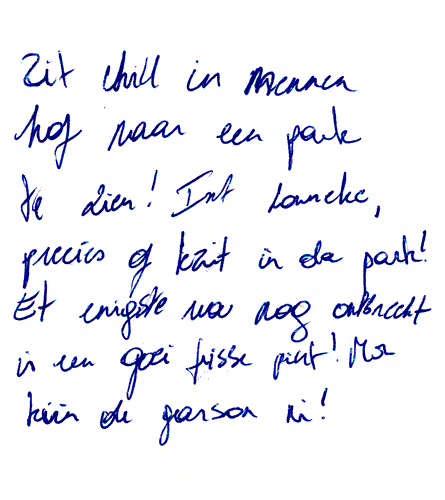 Zit chill in mennen
hof naar een park
te zien! Int zonneke,
precies of kzit in de park!
Et enigste wa nog ontbreekt
is een goei frisse pint! Mor
kziin de garson ni!